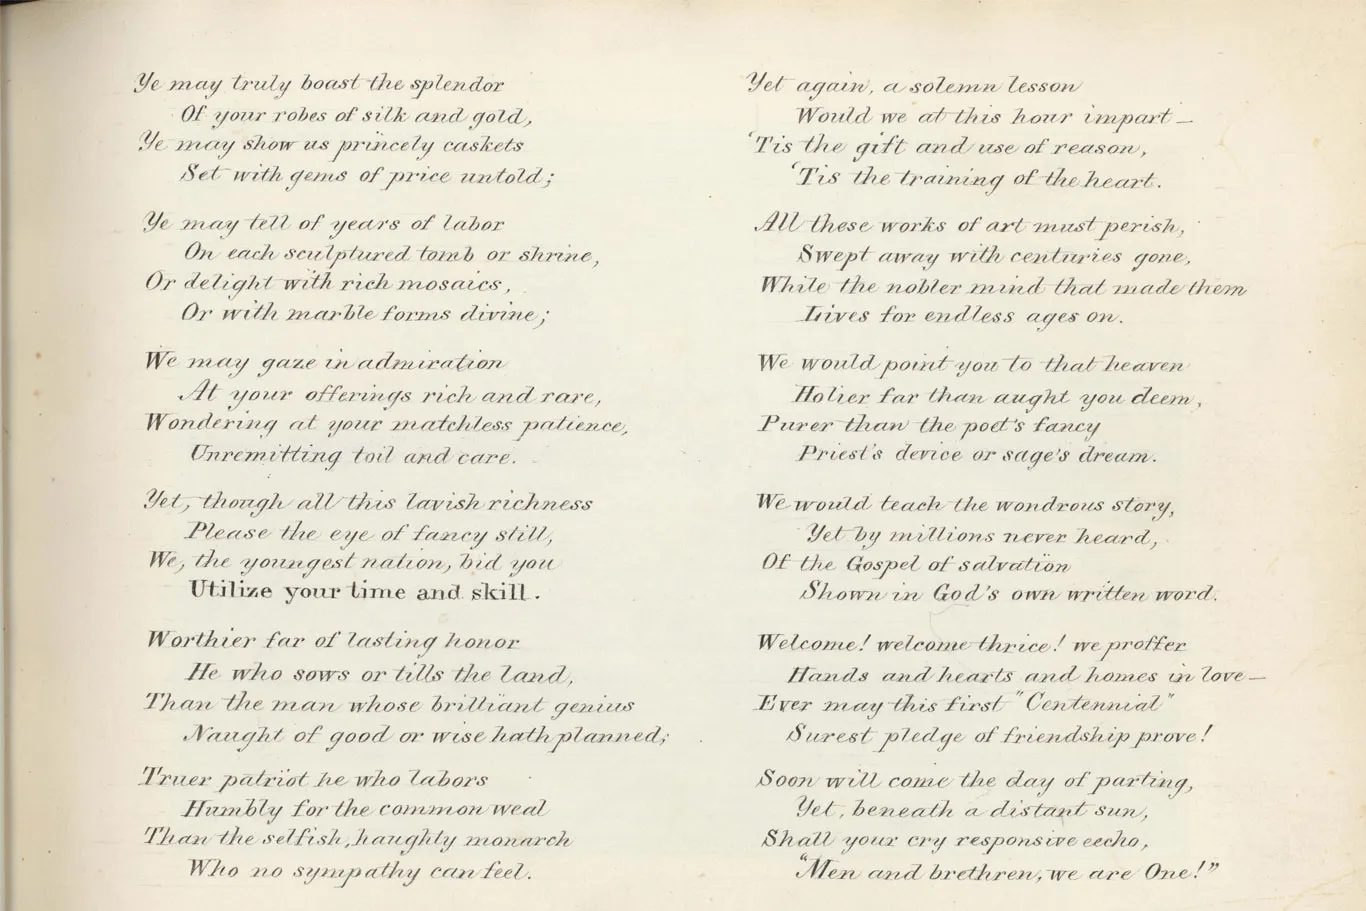 Ye may truly boast the splendor
Of your robes of silk and gold,
Ye may show us princely caskets
Set with gems of price untold;
Ye may tell of years of labor
On each sculptured tomb or shrine,
Or delight with rich mosaics,
Or with marble forms divine;
We may gaze in admiration
At your offerings rich and rare,
Wondering at your matchless patience,
Unremitting toil and care.
Yet, though all this lavish richness
Please the eye of fancy still,
We, the youngest nation, bid you
Utilize your time and skill.
Worthier far of lasting honor
He who sows or tills the land,
Than the man whose brilliant genius
Naught of good or wise hath planned;
Truer patriot he who labors
Humbly for the common weal
Than the selfish, haughty monarch
Who no sympathy can feel.
Yet again, a solemn lesson
Would we at this hour impart —
'Tis the gift and use of reason,
'Tis the training of the heart.
All these works of art must perish,
Swept away with centuries gone,
While the nobler mind that made them
Lives for endless ages on.
We would point you to that heaven
Holier far than aught you deem,
Purer than the poet's fancy
Priest's device or sage's dream.
We would teach the wondrous story,
Yet by millions never heard,
Of the Gospel of salvation
Shown in God's own written word.
Welcome! welcome thrice! we proffer
Hands and hearts and homes in love —
Ever may this first "Centennial"
Surest pledge of friendship prove!
Soon will come the day of parting,
Yet, beneath a distant sun,
Shall your cry responsive eecho,
"Men and brethren, we are One!"